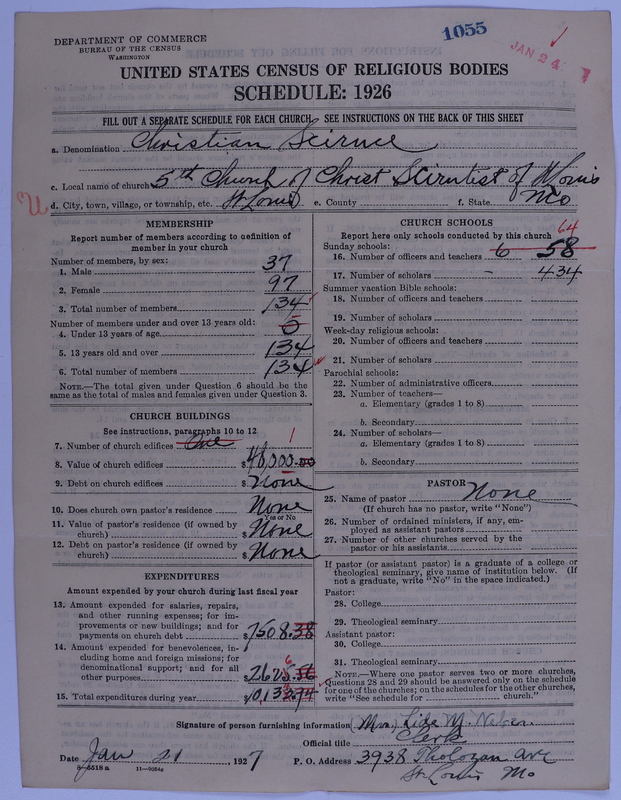 DEPARTMENT OF COMMERCE
BUREAU OF THE CENSUS
WASHINGTON
1055
JAN 24
UNITED STATES CENSUS OF RELIGIOUS BODIES
SCHEDULE: 1926
FILL OUT A SEPARATE SCHEDULE FOR EACH CHURCH. SEE INSTRUCTIONS ON THE BACK OF THIS SHEET
a. Denomination Christian Science
c. Local name of church 5th Church of Christ Scientist of St Louis
d. City, town, village, or township, etc. St. Louis e. County f. State Mo
MEMBERSHIP
Report number of members according to definition of
member in your church
Number of members, by sex:
1. Male 37
2. Female 97
3. Total number of members 134
Number of members under and over 13 years old:
4. Under 13 years of age 0
5. 13 years old and over 134
6. Total number of members 134
NOTE.—The total given under Question 6 should be the
same as the total of males and females given under Question 3.
CHURCH BUILDINGS
See instructions, paragraphs 10 to 12
7. Number of church edifices One 1
8. Value of church edifices $48,000.00
9. Debt on church edifices $None
10. Does church own pastor's residence None
Yes or No
11. Value of pastor's residence (if owned by
church) $None
12. Debt on pastor's residence (if owned by
church) $None
EXPENDITURES
Amount expended by your church during last fiscal year
13. Amount expended for salaries, repairs,
and other running expenses; for im-
provements or new buildings; and for
payments on church debt $7508.38
14. Amount expended for benevolences, in-
cluding home and foreign missions; for
denominational support; and for all
other purposes $
15. Total expenditures during year $
CHURCH SCHOOLS
Report here only schools conducted by this church
Sunday schools: 64
16. Number of officers and teachers 6 58
17. Number of scholars - 434
Summer vacation Bible schools:
18. Number of officers and teachers
19. Number of scholars
Week-day religious schools:
20. Number of officers and teachers
21. Number of scholars
Parochial schools:
22. Number of administrative officers
23. Number of teachers—
a. Elementary (grades 1 to 8)
b. Secondary
24. Number of scholars—
a. Elementary (grades 1 to 8)
b. Secondary
PASTOR
25. Name of pastor None
(If church has no pastor, write "None")
26. Number of ordained ministers, if any, em-
ployed as assistant pastors
27. Number of other churches served by the
pastor or his assistants
If pastor (or assistant pastor) is a graduate of a college or
theological seminary, give name of institution below. (If
not a graduate, write "No" in the space indicated.)
Pastor:
28. College
29. Theological seminary
Assistant pastor:
30. College
31. Theological seminary
NOTE.—Where one pastor serves two or more churches,
Questions 28 and 29 should be answered only on the schedule
for one of the churches; on the schedules for the other churches,
write "See schedule for church."
Signature of person furnishing information Mrs. M.
Official title Clerk
Date Jan 21, 1927 P. O. Address 3938 Tholozan Ave
8—5518a 11—9054c St Louis Mo